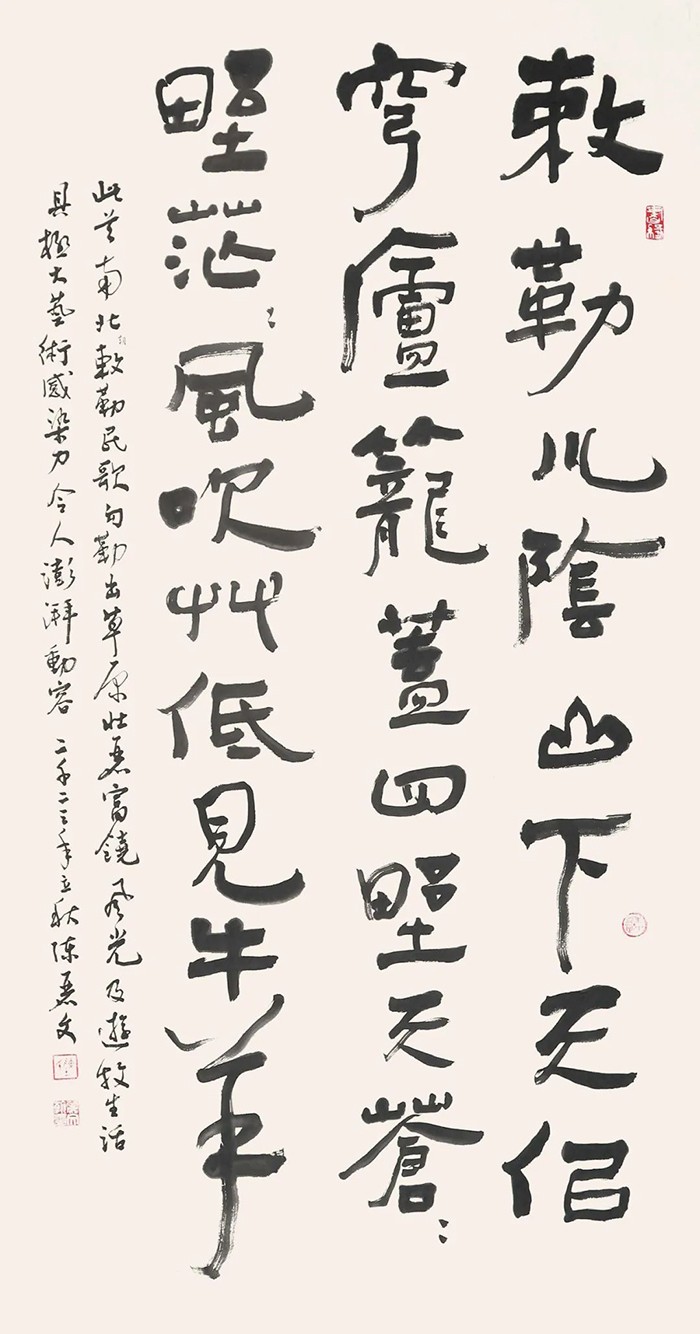 敕勒川陰山下天佀
穹廬籠蓋四野天蒼〻
野茫〻風吹艸低見牛羊
此首南北敕勒民歌勾勒出草原壯麗富饒風光及遊牧生活
具極大藝術感染力令人澎湃動容 二千二三年立秋陳麗文